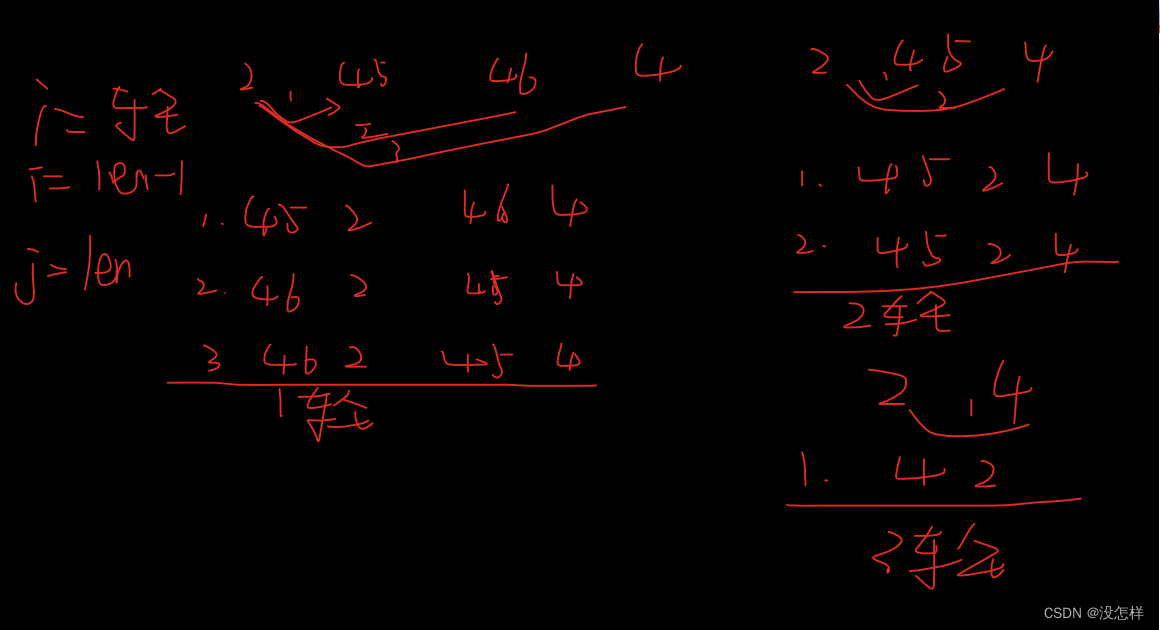 i = 轮
i = len-1
j = len
2 45 46 4
1 2 3
1. 45 2 46 4
2. 46 2 45 4
3 46 2 45 4
1 轮
2 45 4
1 2
1. 45 2 4
2. 45 2 4
2 轮
2 4
1
1. 4 2
3 轮
CSDN @没怎样